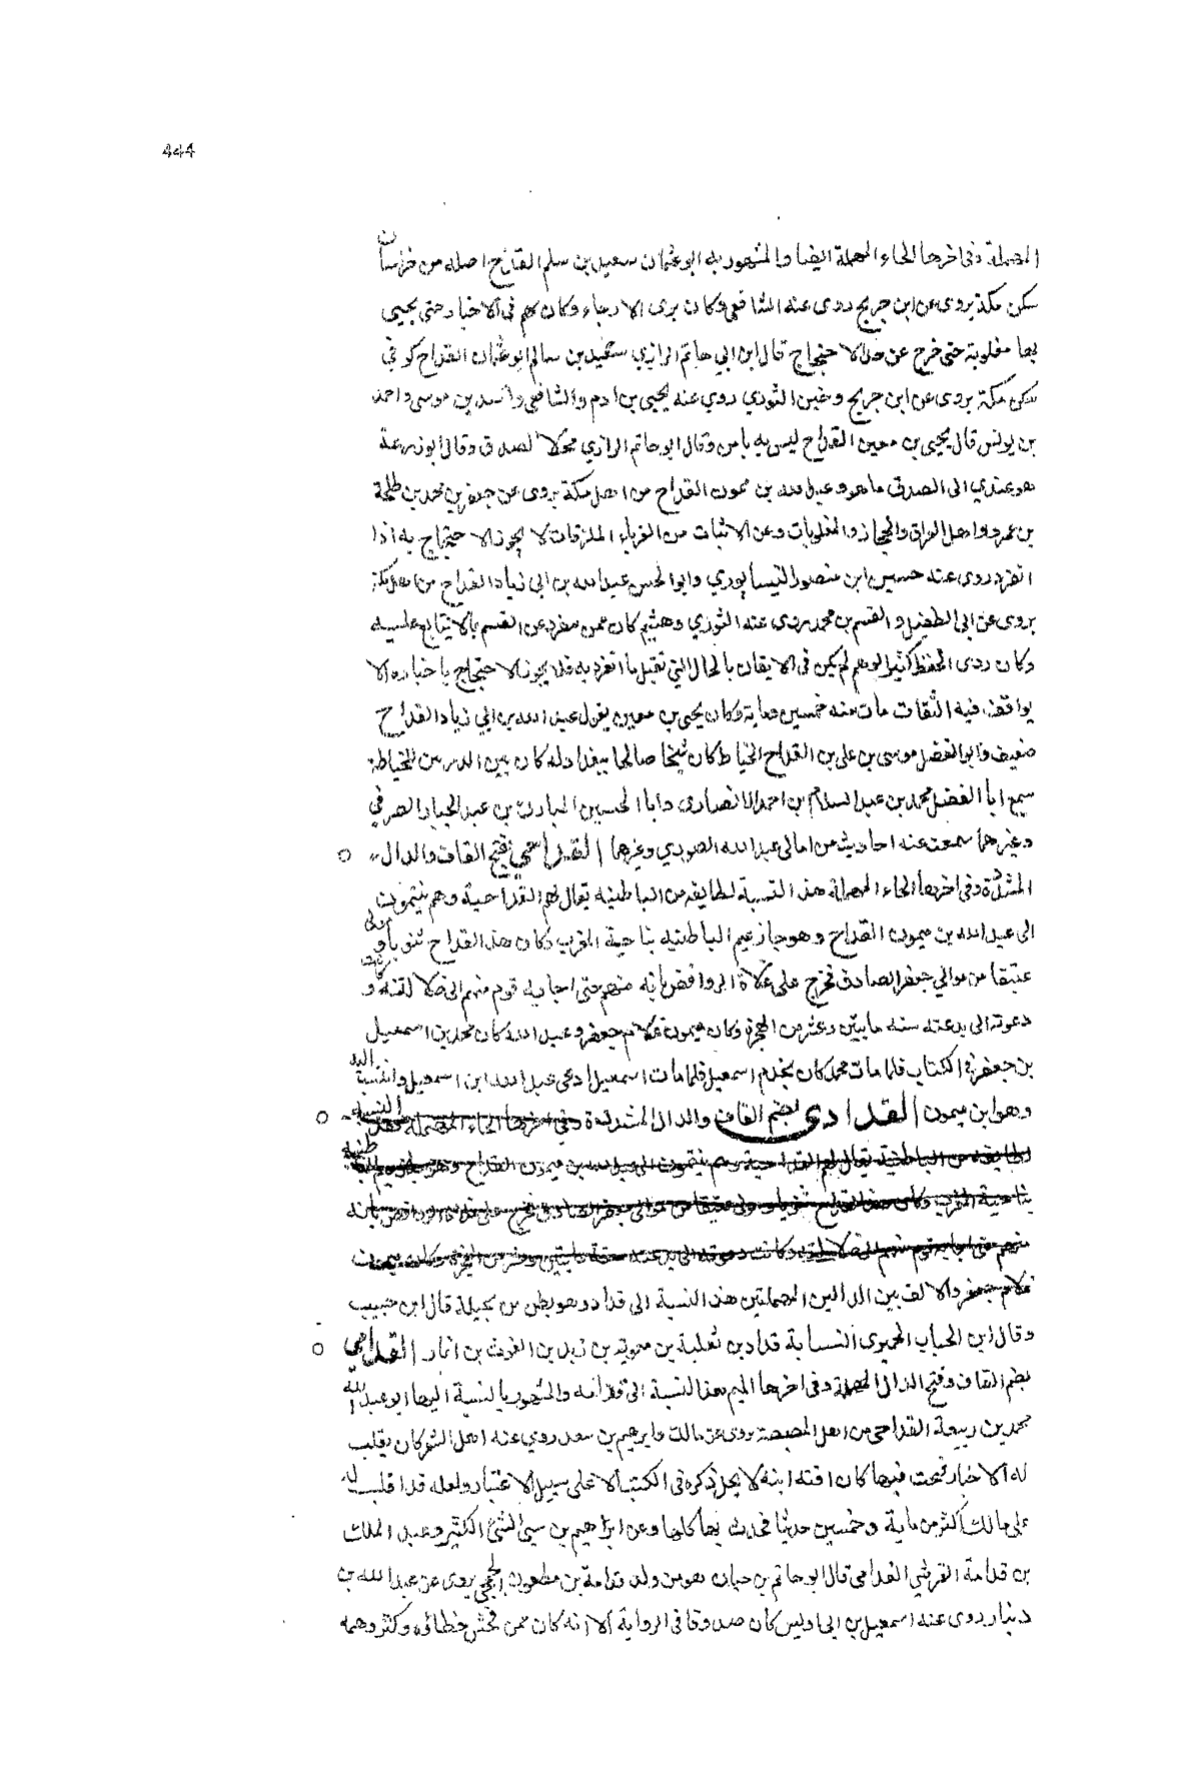 444
المهملة وفى اخرها الحاء المهملة ايضا والمشهور به ابو عثمان سعيد بن سلم القداح اصله من خراسان
سكن مكة يروى عن ابن جريج روى عنه الشافعى وكان يرى الارجاء وكان يهم فى الاخبار حتى يجيى
بها مقلوبة حتى خرج عن حد الاحتجاج قال ابن ابي حاتم الرازي سعيد بن سالم ابو عثمان القداح كوفي
سكن مكة يروى عن ابن جريج و الثوري روي عنه يحيى بن ادم والشافعي واسد بن موسى واحمد
بن يونس قال يحيى بن معين القداح ليس به باس وقال ابو حاتم الرازي محله الصدق وقال ابو زرعة
هو عندي الى الصدق ما هو وعبد الله بن ميمون القداح من اهل مكة يروى عن جعفر بن محمد بن طلحة
بن عمرو واهل العراق والحجاز والمقلوبات وعن الاثبات من الغرباء الملزقات لا يجوز الاحتجاج به اذا
انفرد روى عنه حسين ابن منصور النيسابوري وابو الحسن عبيد الله بن ابى زياد القداح من اهل مكة
يروى عن ابى الطفيل و القسم بن محمد روى عنه الثوري وهشيم كان ممن ينفرد عن القسم بما لا يتابع عليه
وكان ردى الحفظ كثير الوهم لم يكن فى الاتقان بالحال التي تقبل ما انفرد به فلا يجوز الاحتجاج باخباره الا
يوافقه فيه الثقات مات سنه خمسين وماية وكان يحيى بن معين يقول عبيد الله بن ابي زياد القداح
ضعيف وابو الفضل موسى بن على بن القداح الخياط كان شيخا صالحا ببغداد له كان بين الدربين للخياطة
سمع ابا الفضل محمد بن عبد السلام بن احمد الانصارى وابا الحسين المبارك بن عبد الجبار الصرفي
وغيرهما سمعت عنه احاديث من امالى عبد الله الصوري وغيرها القداحي بفتح القاف والدال
المشددة وفى اخرها الحاء المهملة هذه النسبة لطايفه من الباطنيه يقال لهم القداحية وهم ينتمون
الى عبد الله بن ميمون القداح و زعيم الباطنيه بناحية المغرب وكان هذا القداح ثنويا ومولى
عتيقا من موالي جعفر الصادق فخرج على غلاة الروافض بانه منهم حتى اجابه قوم منهم الى ضلالته و كانت
دعوته الى بدعته سنه مايتين وعشر من الهجرة وكان ميمون غلام جعفر وعبد الله كان محمد بن اسمعيل
بن جعفر فى الكتاب فلما مات محمد كان يخدم اسمعيل فلما مات اسمعيل ادعى عبد الله ابن اسمعيل وانتسب اليه
وهو ابن ميمون القدادى بضم القاف والدال المشددة وفى اخرها الحاء المهملة هذه النسبة
لطايفه من الباطنية يقال لهم القداحية وهم ينتمون الى عبد الله بن ميمون القداح وهو زعيم الباطنية
بناحية المغرب وكان هذا القداح ثنويا ومولى عتيقا من موالى جعفر الصادق فخرج على غلاة الروافض بانه
منهم حتى اجابه قوم منهم الى ضلالته وكانت دعوته الى بدعته سنة مايتين وعشر من الهجرة وكان ميمون
غلام جعفر والالف بين الدالين المهملتين هذه النسبة الى قداد وهو بطن من بجيلة قال ابن حبيب
وقال ابن الحباب الحميرى النسابة قداد بن ثعلبة بن معوية بن زيد بن الغوث بن انمار القدامي
بضم القاف وفتح الدال المهملة وفى اخرها الميم هذه النسبة الى قدامه والمشهور بالنسبة اليها ابو عبد الله
محمد بن ربيعة القدامى من اهل المصيصة يروى عن مالك وابرهيم بن سعد روي عنه اهل الثغر كان يقلب
له الاخبار فيحدث فيها كان افته ابنه لا يحل ذكره فى الكتب الا على سبيل الاعتبار ولعله قد اقلب له
على مالك اكثر من ماية وخمسين حديثا فحدث بها كلها وعن ابراهيم بن سعد الشئ الكثير وعبد الملك
بن قدامة القرشي القدامى قال ابو حاتم بن حبان هو من ولد قدامة بن مظعون الجمحي يروى عن عبد الله بن
دينار روى عنه اسمعيل بن ابى اويس كان صدوقا فى الرواية الا انه كان ممن فحش خطاؤه وكثر وهمه